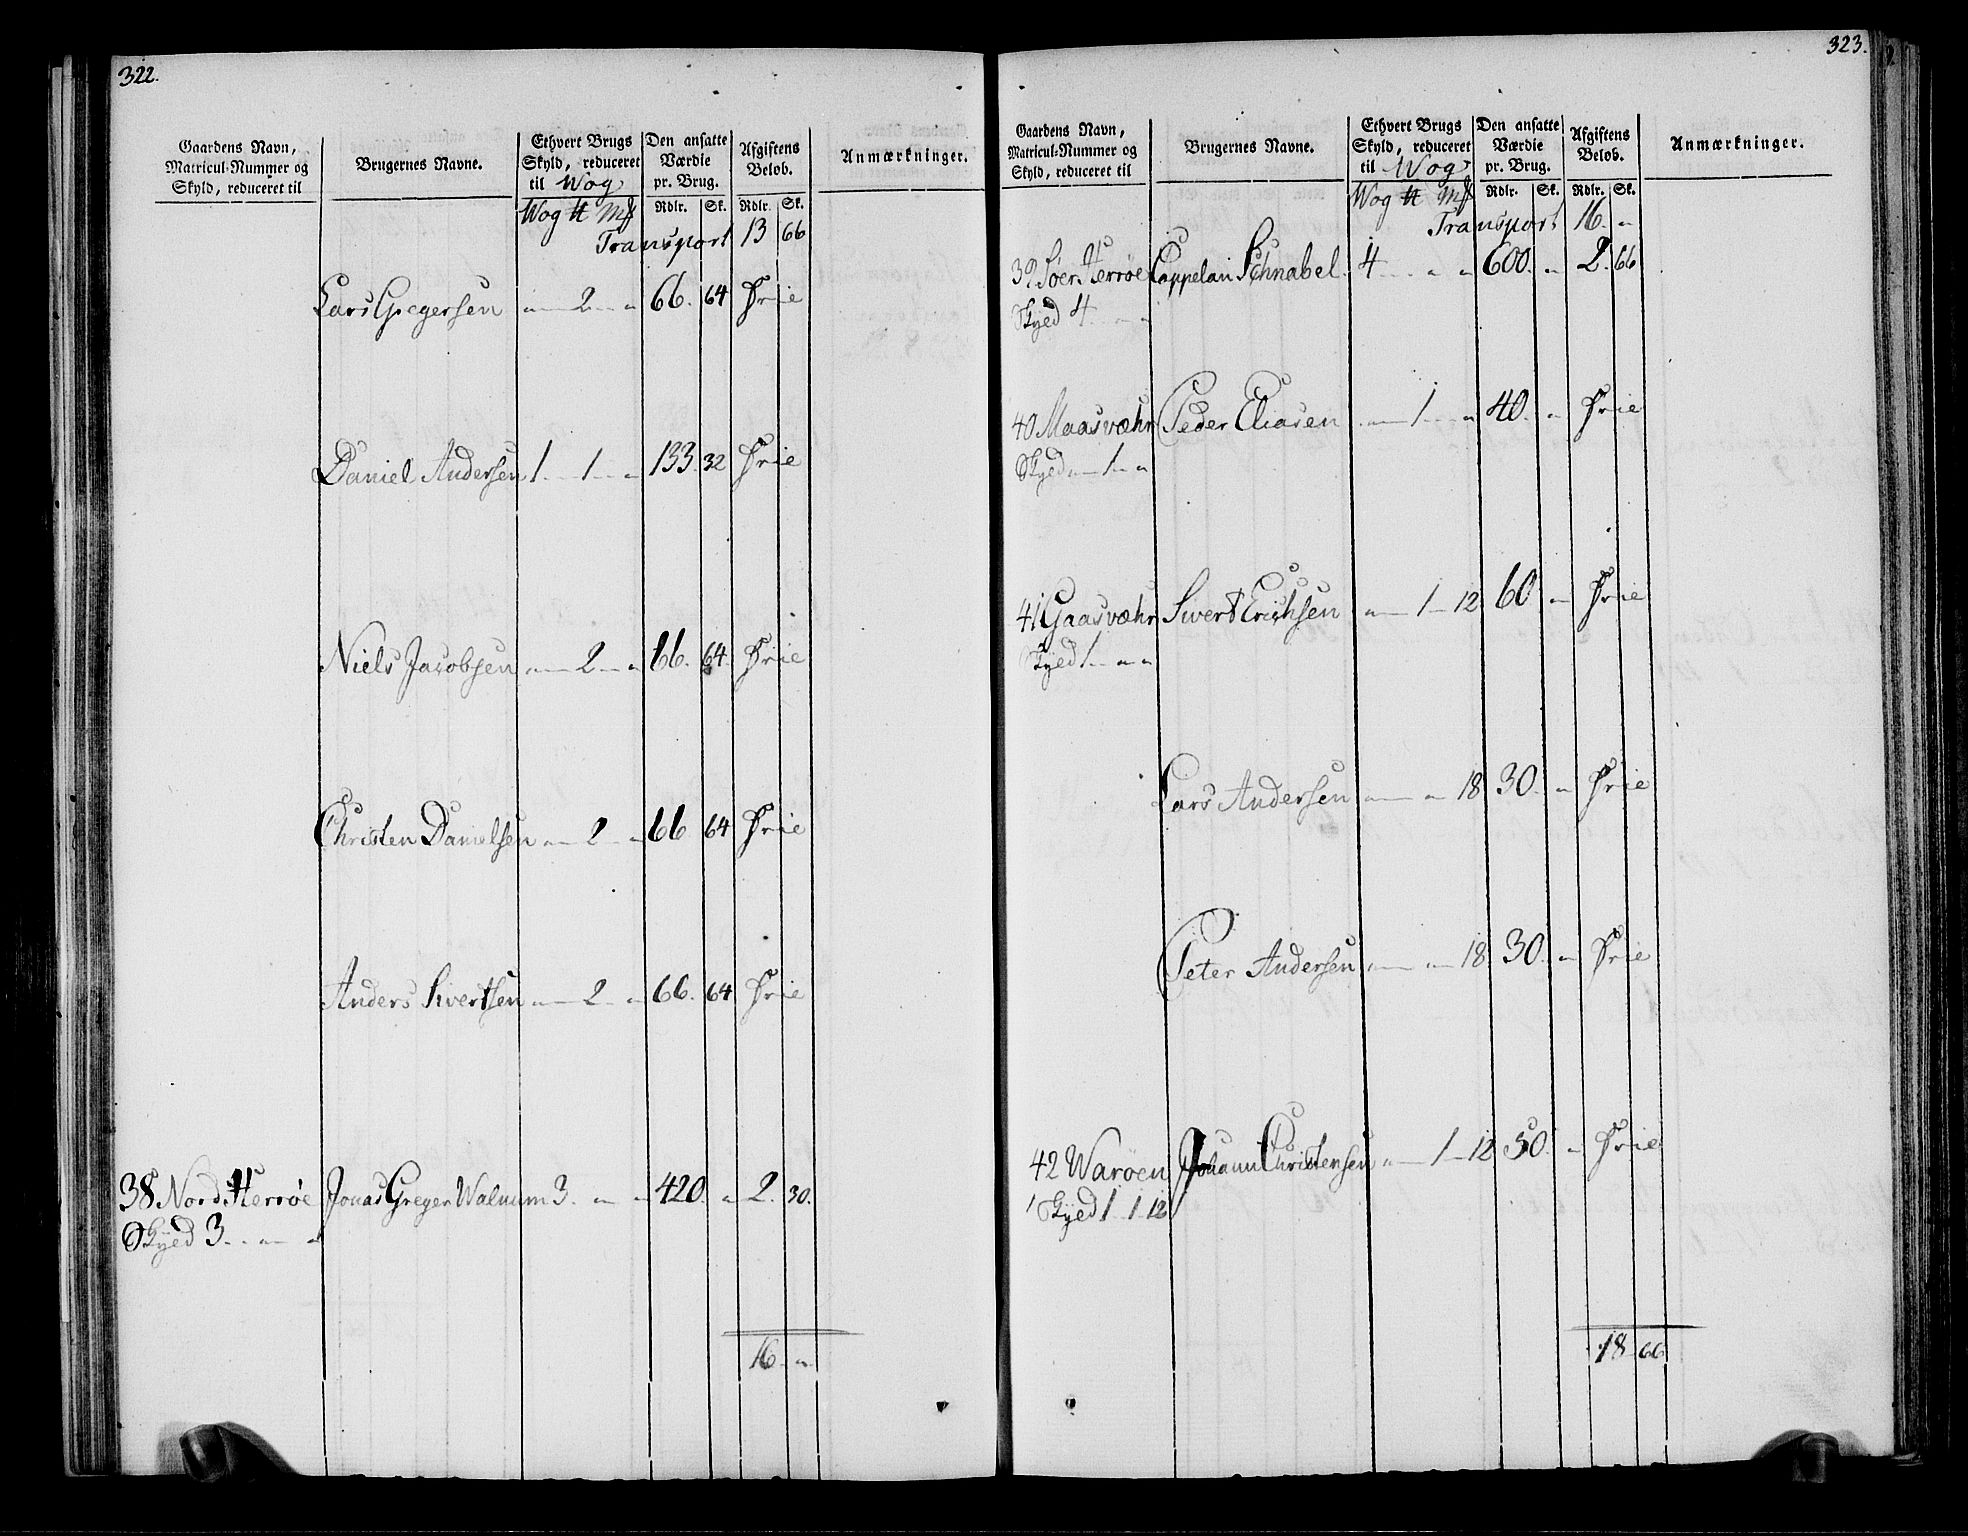 322.
Gaardens Navn, Matricul-Nummer og Skyld, reduceret til
Brugernes Navne.
Ethvert Brugs Skyld, reduceret til Wog
Den ansatte Værdie pr. Brug.
Afgiftens Beløb.
Anmærkninger.
Wog ℔ Mk Rdlr. Sk. Rdlr. Sk.
Transport 13 66
Lars Gregersen " 2 " 66. 64 Frie
Daniel Andersen 1 1 " 133. 32 Frie
Niels Jacobsen " 2 " 66. 64 Frie
Christen Danielsen " 2 " 66 64 Frie
Anders Sivertsen " 2 " 66. 64 Frie
38 Nord Herrøe Jonas Greger Walnum 3. " " 420. " 2. 30.
Skyed 3. " "
16 "
323.
Gaardens Navn, Matricul-Nummer og Skyld, reduceret til
Brugernes Navne.
Ethvert Brugs Skyld, reduceret til Wog
Den ansatte Værdie pr. Brug.
Afgiftens Beløb.
Anmærkninger.
Wog ℔ Mk Rdlr. Sk. Rdlr. Sk.
Transport 16. "
39 Søer Herrøe Cappelan Schnabel. 4 " " 600. " 2. 66
Skyed 4. " "
40 Maasvæhr Peder Eliasen " 1 " 40. " Frie
Skyed " 1 "
41 Gaasvæhr Sivert Erichsen " 1 12 60 " Frie
Skyed 1. " "
Lars Andersen " " 18 30. " Frie
Peter Andersen " " 18 30. " Frie
42 Warøen Johann Christensen " 1 12 50. " Frie
Skyed 1 1 12
18 66